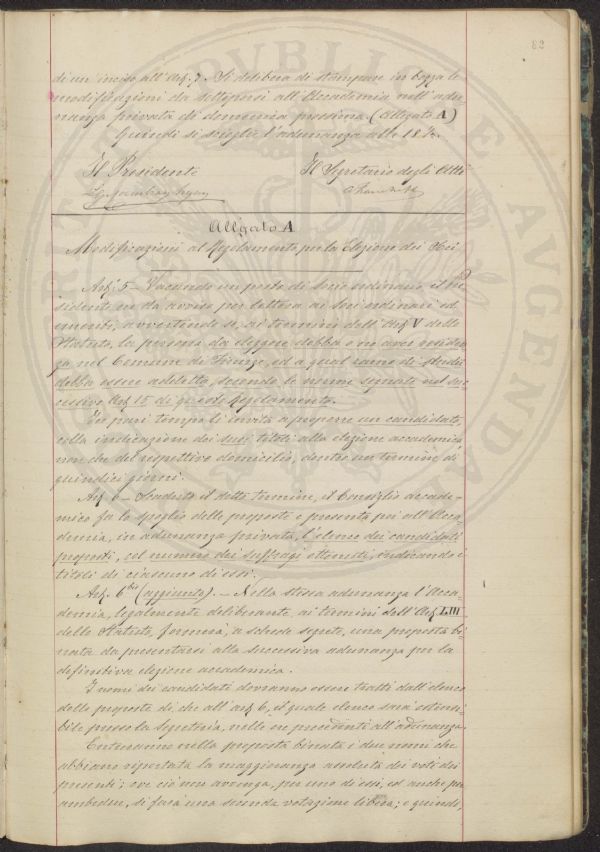 82
di un inciso all'Art. 7. Si delibera di stampare in bozza le
modificazioni da sottoporsi all'Accademia nell'adu-
nanza privata di domenica prossima. (Allegato A)
Quindi si scioglie l'adunanza alle 18 ¾.
Il Presidente
Il Segretario degli Atti
Allegato A
Modificazioni al Regolamento per la Elezione dei Soci
Art. 5 – Vacando un posto di socio ordinario il Pre-
sidente ne dà avviso per lettera ai soci ordinari ed
emeriti, avvertendo se, ai termini dell'Art. V dello
Statuto, la persona da eleggere debba o no aver residen-
za nel Comune di Firenze, ed a qual ramo di studii
debba essere addetta, secondo le norme segnate nel suc-
cessivo Art. 15 di questo Regolamento.
In pari tempo li invita a proporre un candidato,
colla indicazione dei suoi titoli alla elezione accademica
non che del respettivo domicilio, dentro un termine di
quindici giorni.
Art. 6 – Scaduto il detto termine, il Consiglio accade-
mico fa lo spoglio delle proposte e presenta poi all'Acca-
demia, in adunanza privata, l'elenco dei candidati
proposti, col numero dei suffragi ottenuti, indicando i
titoli di ciascuno di essi.
Art. 6 bis (aggiunto). – Nella stessa adunanza l'Acca-
demia, legalmente deliberante ai termini dell'Art. LIII
dello Statuto, formerà, a schede segrete, una proposta bi-
nata da presentarsi alla successiva adunanza per la
definitiva elezione accademica.
I nomi dei candidati dovranno essere tratti dall'elenco
delle proposte di che all'art. 6, il quale elenco sarà ostensi-
bile presso la Segreteria, nelle ore precedenti all'adunanza.
Entreranno nella proposta binata i due nomi che
abbiano riportata la maggioranza assoluta dei voti dei
presenti; ove ciò non avvenga, per uno di essi, od anche per
ambedue, si farà una seconda votazione libera; e quindi,